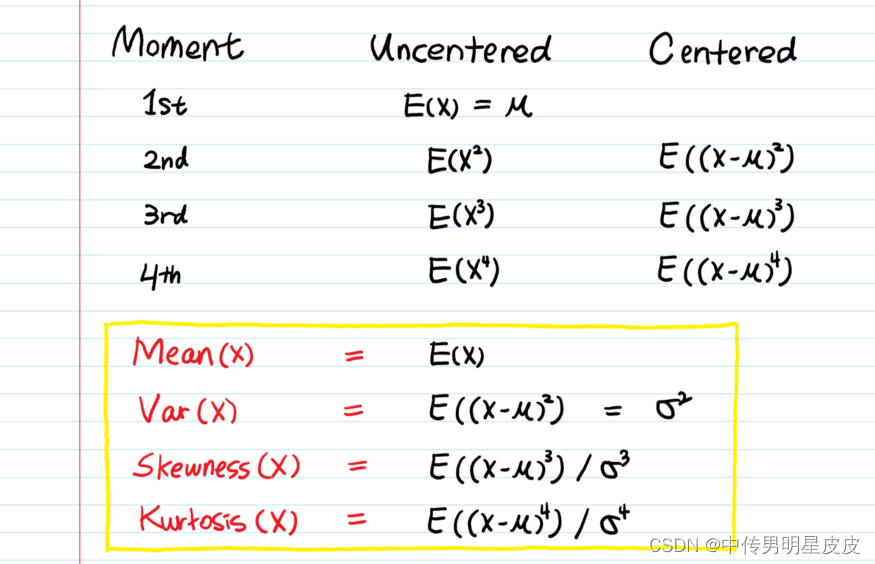 Moment Uncentered Centered
1st E(X) = μ
2nd E(X²) E((X-μ)²)
3rd E(X³) E((X-μ)³)
4th E(X⁴) E((X-μ)⁴)
Mean(X) = E(X)
Var(X) = E((X-μ)²) = σ²
Skewness(X) = E((X-μ)³) / σ³
Kurtosis(X) = E((X-μ)⁴) / σ⁴
CSDN @中传男明星皮皮